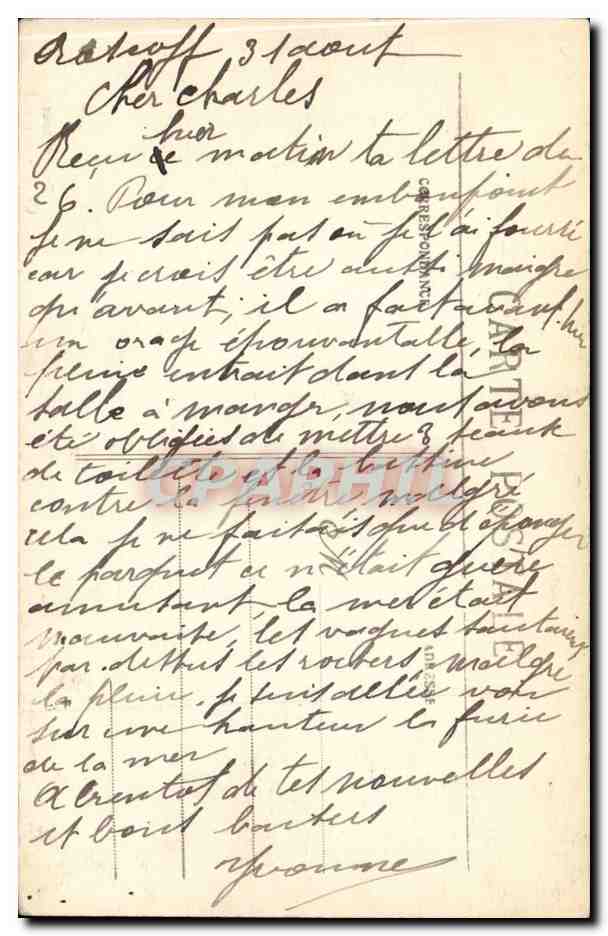 Roscoff 31 août
Cher Charles
hier
Reçu matin ta lettre du
26. Pour mon embonpoint
je ne sais pas où je l'ai fourré
car je crois être aussi maigre
qu'avant, il a fait avant hier
un orage épouvantable, la
pluie entrait dans la
salle à manger, nous avons
été obligées de mettre 2 seaux
de toilette et la bassine
contre la fenêtre malgré
cela je ne faisais que d'éponger
le parquet ce n'était guère
amusant, la mer était
mauvaise, les vagues sautaient
par-dessus les rochers, malgré
la pluie, je suis allée voir
sur une hauteur la furie
de la mer
A bientôt de tes nouvelles
et bons baisers
Yvonne
CARTE POSTALE
CORRESPONDANCE
ADRESSE
CPARAMA